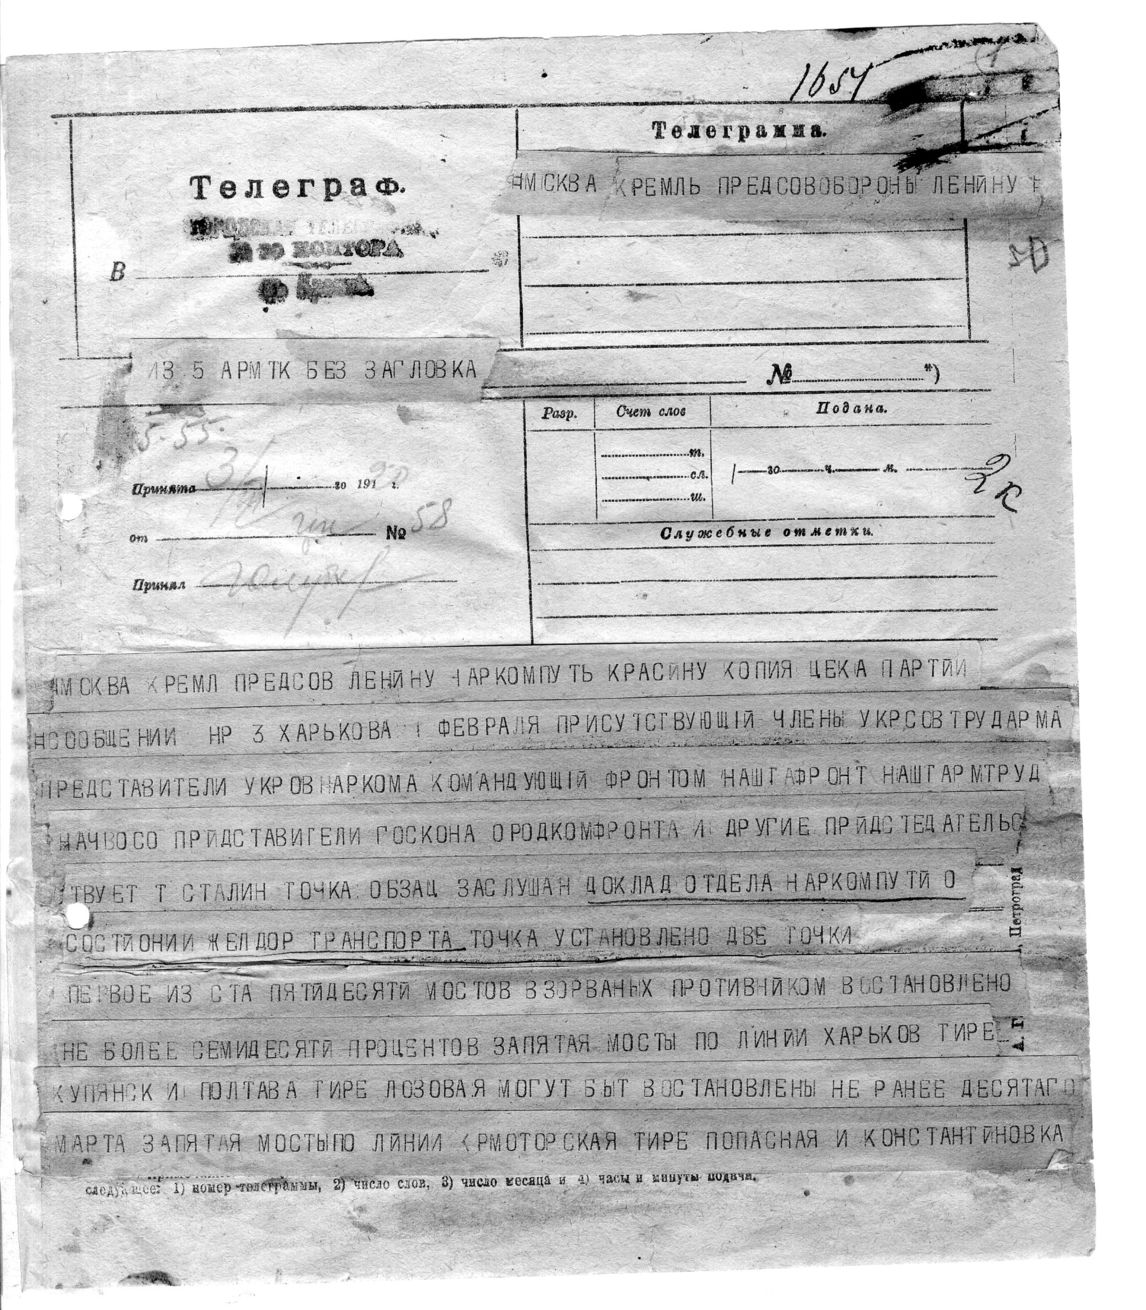 1654
Телеграмма.
МСКВА КРЕМЛЬ ПРЕДСОВОБОРОНЫ ЛЕНЙНУ
Телеграф.
ГОРОДСКАЯ
КОНТОРА
В
ИЗ 5 АРМТК БЕЗ ЗАГЛОВКА
№ *)
5-55.
Разр. Счет слов Подана.
т.
сл.
ш.
го ч. м.
2к
Принята 3/ го 1920 г.
от № 58
Служебные отметки.
Принял
МСКВА КРЕМЛ ПРЕДСОВ ЛЕНЙНУ НАРКОМПУТЬ КРАСИНУ КОПИЯ ЦЕКА ПАРТЙИ
НСООБЩЕНИИ НР 3 ХАРЬКОВА 1 ФЕВРАЛЯ ПРИСУТСТВУЮЩІЙ ЧЛЕНЫ УКРСОВТРУДАРМА
ПРЕДСТАВИТЕЛИ УКРОВНАРКОМА КОМАНДУЮЩІЙ ФРОНТОМ НАШТАФРОНТ НАШТАРМТРУД
НАЧВОСО ПРЙДСТАВИТЕЛИ ГОСКОНА ОРОДКОМФРОНТА И ДРУГИЕ ПРЙДСТЕДАТЕЛЬС
ТВУЕТ Т СТАЛИН ТОЧКА ОБЗАЦ ЗАСЛУШАН ДОКЛАД ОТДЕЛА НАРКОМПУТЙ О
СОСТЙОНИИ ЖЕЛДОР ТРАНСПОРТА ТОЧКА УСТАНОВЛЕНО ДВЕ ТОЧКИ
ПЕРВОЕ ИЗ СТА ПЯТЙДЕСЯТЙ МОСТОВ ВЗОРВАНЫХ ПРОТИВНЙКОМ ВОСТАНОВЛЕНО
НЕ БОЛЕЕ СЕМИДЕСЯТЙ ПРОЦЕНТОВ ЗАПЯТАЯ МОСТЫ ПО ЛИНЙИ ХАРЬКОВ ТИРЕ
КУПЯНСК И ПОЛТАВА ТИРЕ ЛОЗОВАЯ МОГУТ БЫТ ВОСТАНОВЛЕНЫ НЕ РАНЕЕ ДЕСЯТАГО
МАРТА ЗАПЯТАЯ МОСТЫПО ЛЙНИИ КРМОТОРСКАЯ ТИРЕ ПОПАСНАЯ И КОНСТАНТЙНОВКА
Петроград
следующее: 1) номер телеграммы, 2) число слов, 3) число месяца и 4) часы и минуты подачи.